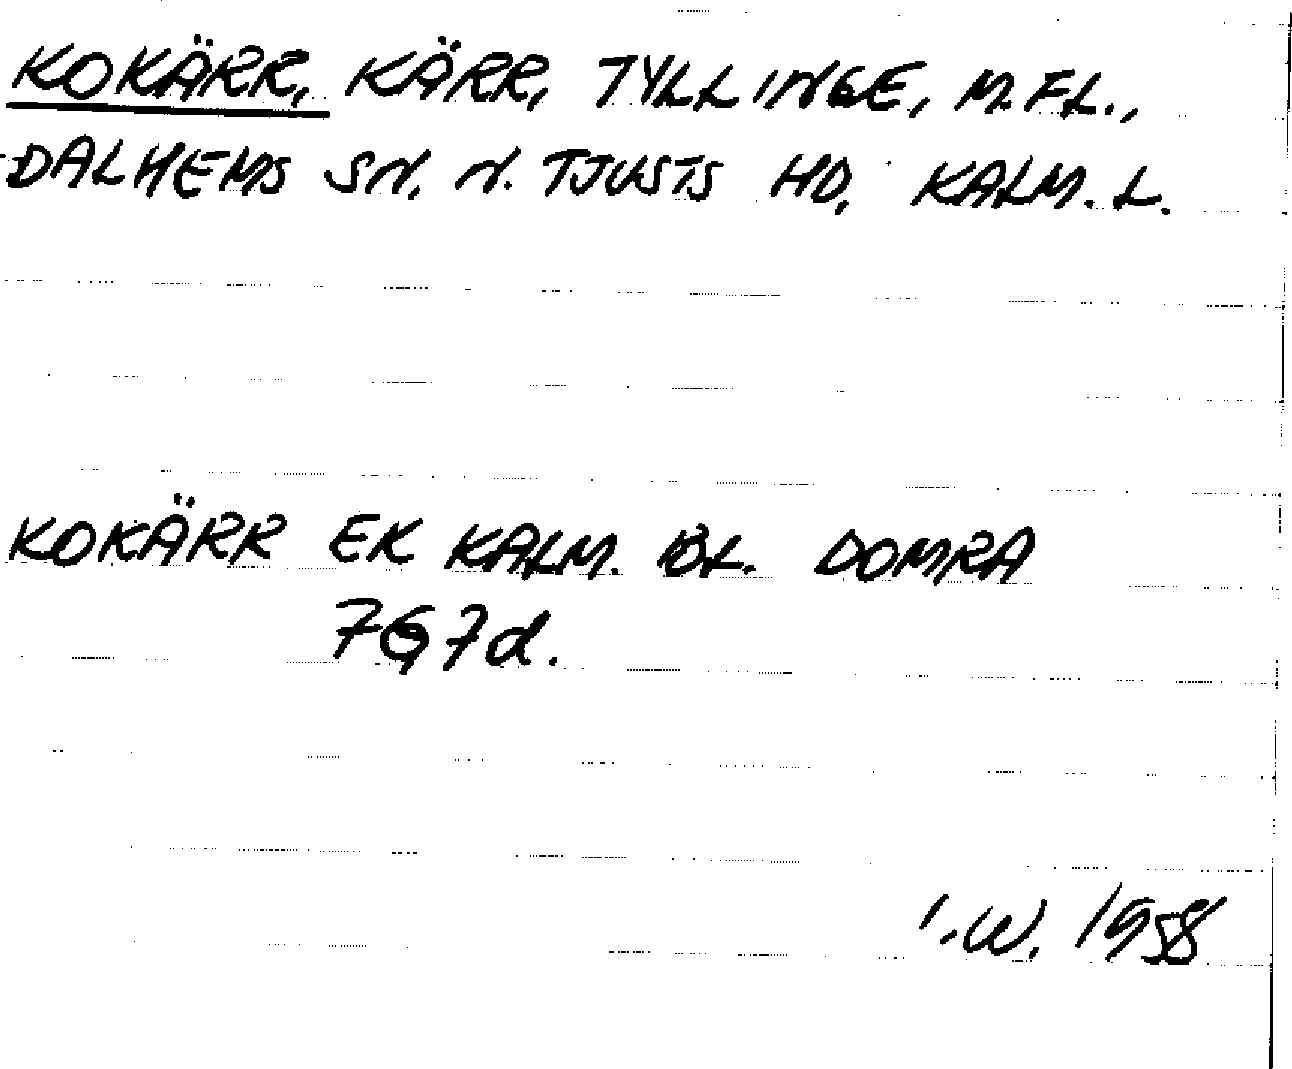 KOKÄRR, KÄRR, TYLLINGE, M.FL.,
DALHEMS SN. N. TJUSTS HD, KALM. L.
KOKÄRR EK KALM. BL. DOMRA
7G7d.
I.W. 1958